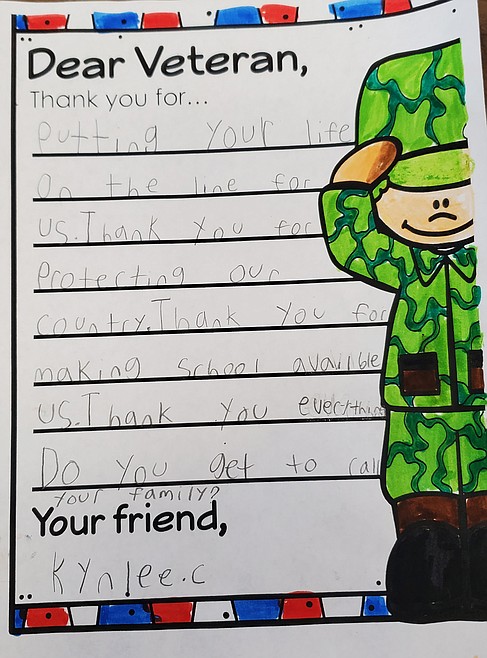 Dear Veteran,
Thank you for...
putting your life
On the line for
us.Thank you for
protecting our
country.Thank you for
making school availble
us.Thank you everything
Do you get to call
your family?
Your friend,
Kynlee.c